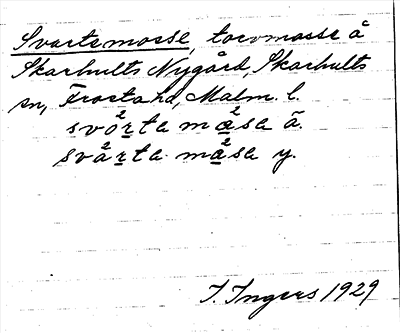 Svartemosse, torvmosse å
Skarhults Nygård, Skarhults
sn, Frosta hd, Malm. l.
svo²rta må²sa ä.
svå²rta må²sa y.
I. Ingers 1929